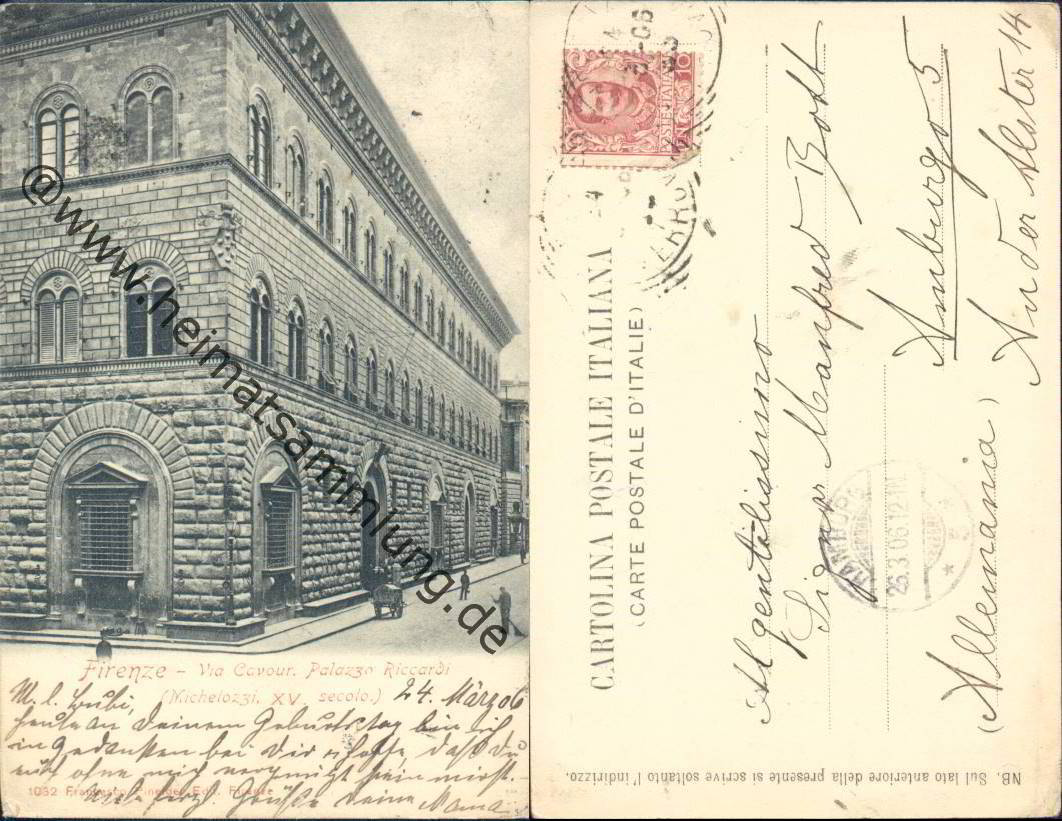 @www.heimatsammlung.de
Firenze - Via Cavour. Palazzo Riccardi
(Michelozzi, XV. secolo.)
24. März 06
M. l. Bubi,
heute an Deinem Geburtstag bin ich
in Gedanken bei Dir u hoffe, daß Du
auch ohne mich vergnügt sein wirst.
herzl. Grüße Deine Mama
1032 Francesco Edit. Firenze
10
POSTE ITALIANE
24
3-06
CARTOLINA POSTALE ITALIANA
(CARTE POSTALE D'ITALIE)
Al gentilissimo
Signor Manfred Bott
Amburgo 5
An der Alster 14
(Allemania)
HAMBURG
26.3.06.12-1N
NB. Sul lato anteriore della presente si scrive soltanto l'indirizzo.